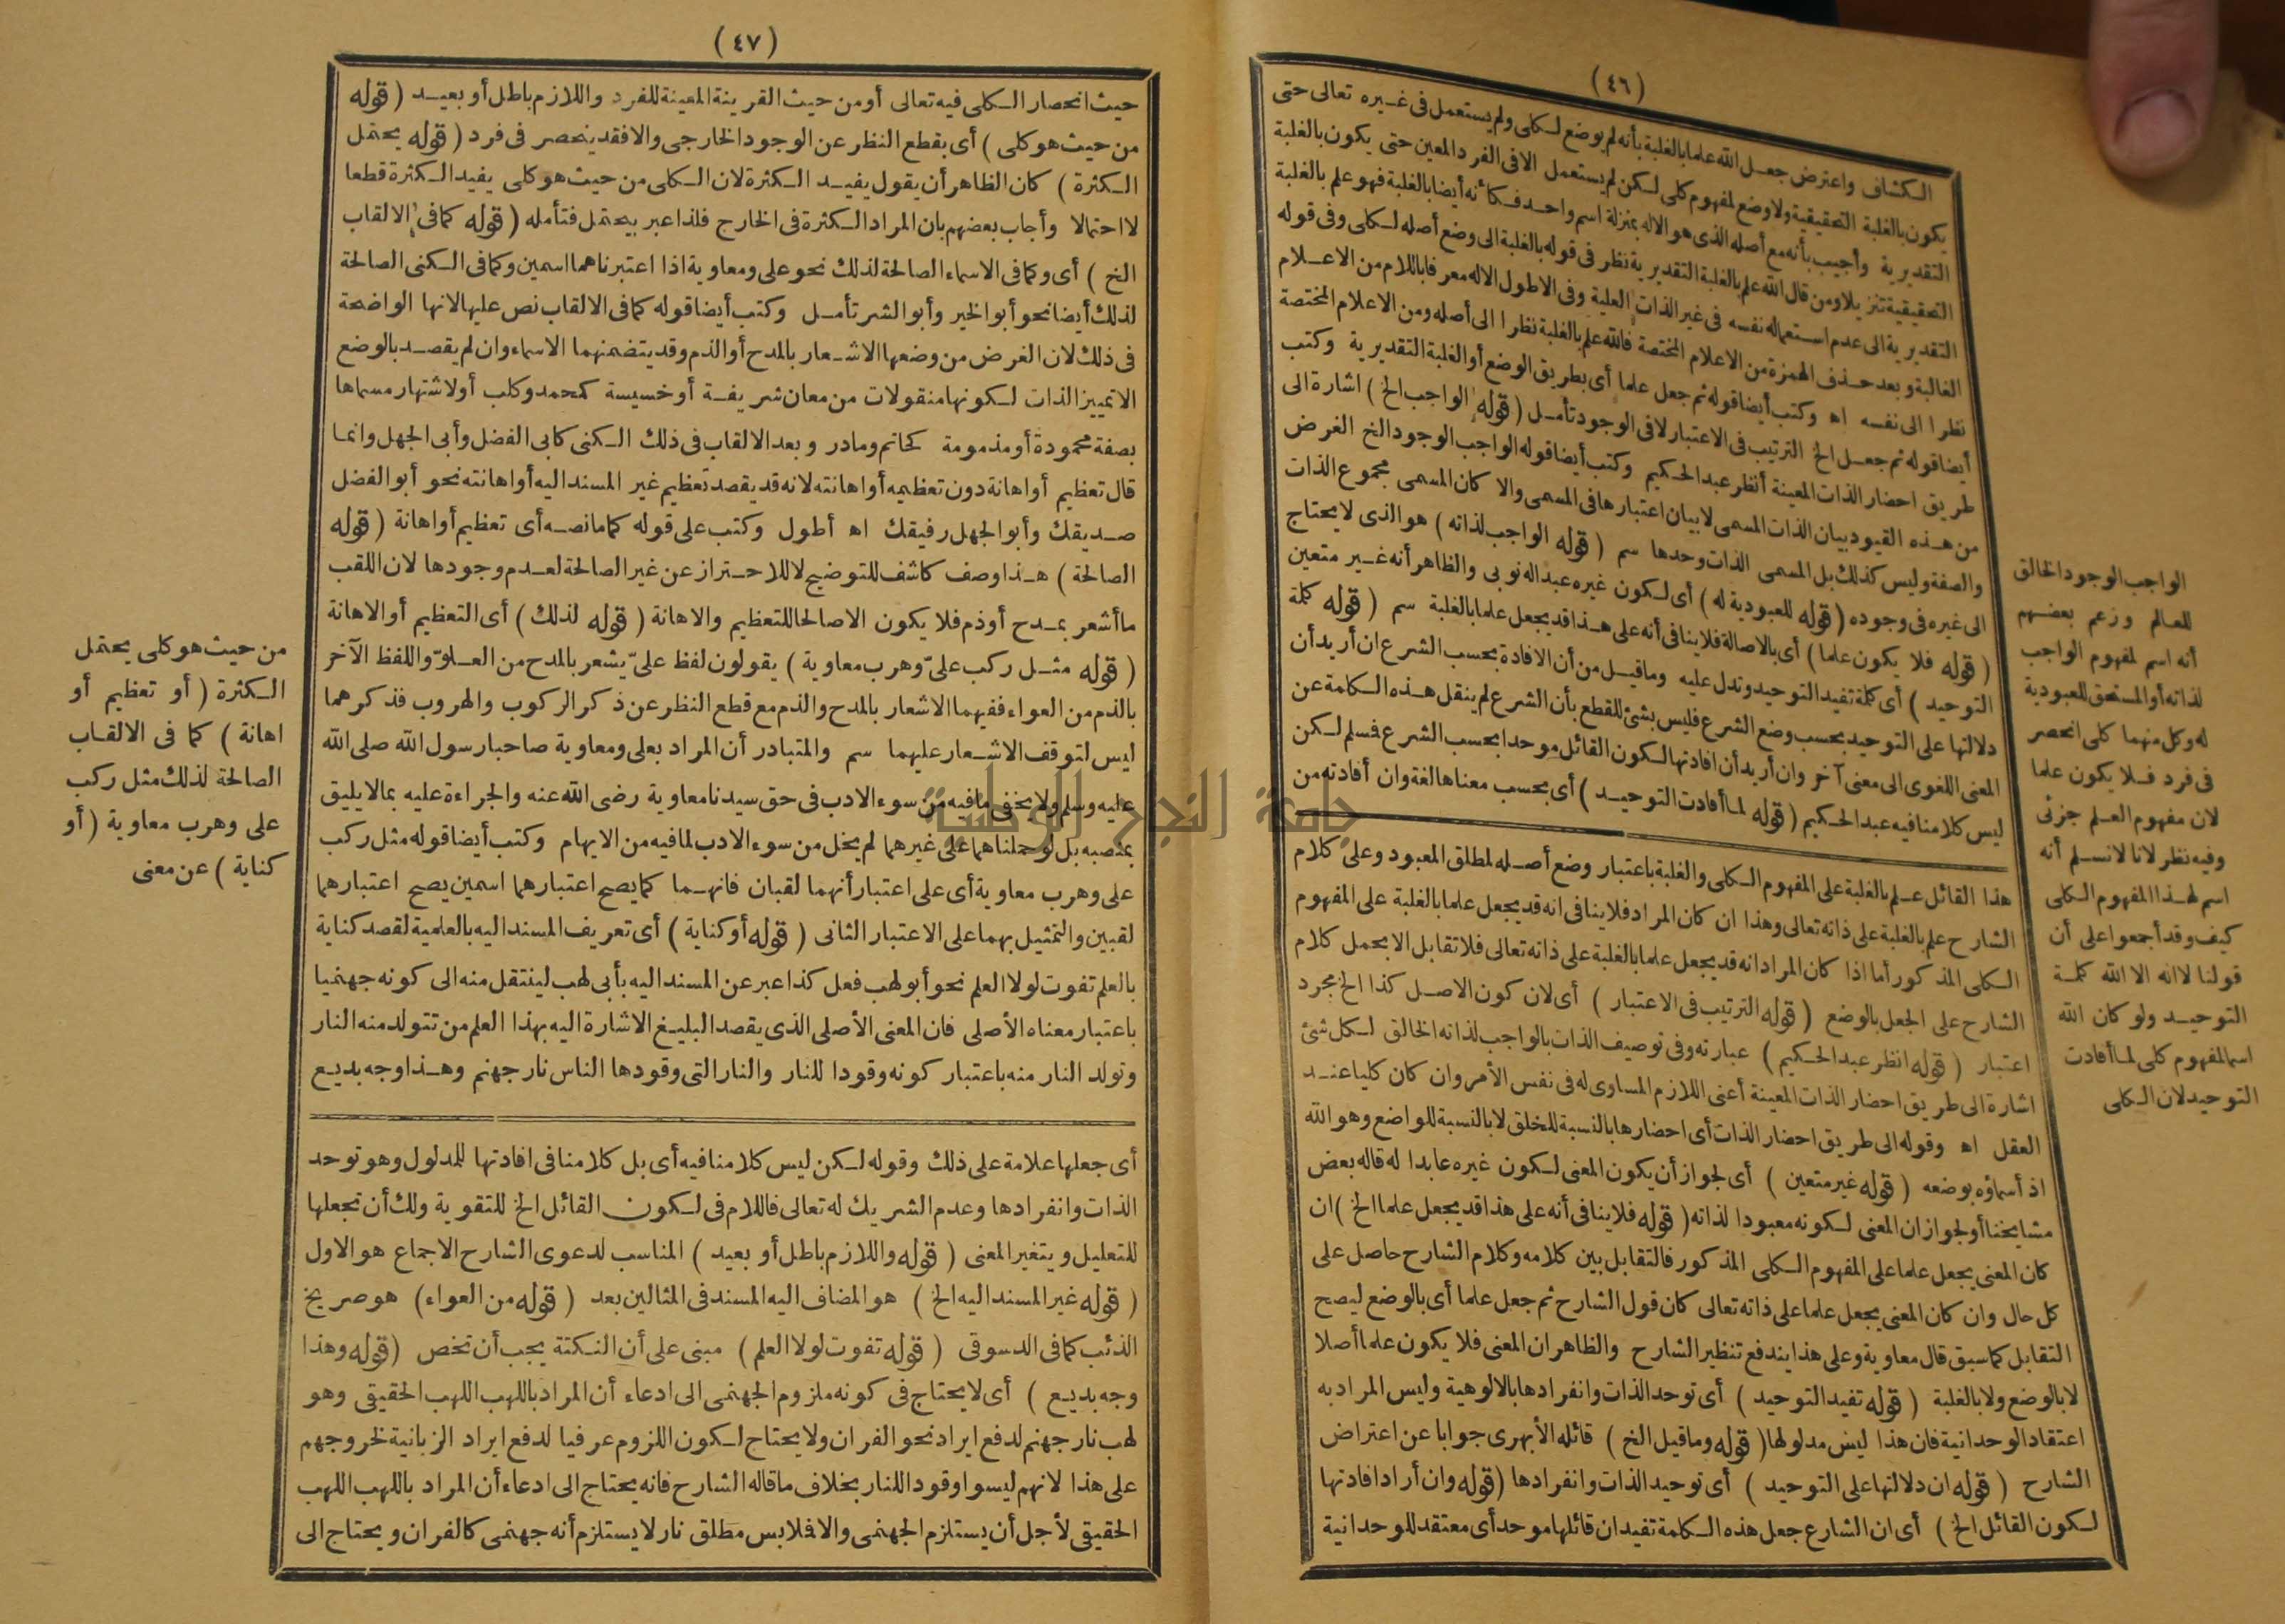 (٤٦)
الكشاف واعترض جعل الله علما بالغلبة بأنه لم يوضع لكلى ولم يستعمل فى غيره تعالى حتى
يكون بالغلبة التحقيقية ولا وضع لمفهوم كلى لكن لم يستعمل الا فى الفرد المعين حتى يكون بالغلبة
التقديرية وأجيب بأنه مع أصله الذى هو الاله بمنزلة اسم واحد فكأنه أيضا بالغلبة فهو علم بالغلبة
التحقيقية تنزيلا ومن قال الله علم بالغلبة التقديرية نظر فى قوله بالغلبة الى وضع أصله لكلى وفى قوله
التقديرية الى عدم استعماله نفسه فى غير الذات العلية وفى الاطول الاله معرفا باللام من الاعلام
الغالبة وبعد حذف الهمزة من الاعلام المختصة فالله علم بالغلبة نظرا الى أصله ومن الاعلام المختصة
نظرا الى نفسه اه وكتب أيضا قوله ثم جعل علما أى بطريق الوضع أو الغلبة التقديرية وكتب
أيضا قوله ثم جعل الخ الترتيب فى الاعتبار لا فى الوجود تأمل (قوله الواجب الخ) اشارة الى
طريق احضار الذات المعينة أنظر عبد الحكيم وكتب أيضا قوله الواجب الوجود الخ الغرض
من هذه القيود بيان الذات المسمى لا بيان اعتبارها فى المسمى والا كان المسمى مجموع الذات
والصفة وليس كذلك بل المسمى الذات وحدها سم (قوله الواجب لذاته) هو الذى لا يحتاج
الى غيره فى وجوده (قوله للعبودية له) أى لكون غيره عبدا له نوبى والظاهر أنه غير متعين
(قوله فلا يكون علما) أى بالاصالة فلا ينافى أنه على هذا قد يجعل علما بالغلبة سم (قوله كلمة
التوحيد) أى كلمة تفيد التوحيد وتدل عليه وما قيل من أن الافادة بحسب الشرع ان أريد أن
دلالتها على التوحيد بحسب وضع الشرع فليس بشئ للقطع بأن الشرع لم ينقل هذه الكلمة عن
المعنى اللغوى الى معنى آخر وان أريد أن افادتها لكون القائل موحدا بحسب الشرع فسلم لكن
ليس كلامنا فيه عبد الحكيم (قوله لما أفادت التوحيد) أى بحسب معناها لغة وان أفادته من
هذا القائل علم بالغلبة على المفهوم الكلى والغلبة باعتبار وضع أصله لمطلق المعبود وعلى كلام
الشارح علم بالغلبة على ذاته تعالى وهذا ان كان المراد فلا ينافى انه قد يجعل علما بالغلبة على المفهوم
الكلى المذكور أما اذا كان المراد انه قد يجعل علما بالغلبة على ذاته تعالى فلا تقابل الا بحمل كلام
الشارح على الجعل بالوضع (قوله الترتيب فى الاعتبار) أى لان كون الاصل كذا الخ مجرد
اعتبار (قوله انظر عبد الحكيم) عبارته وفى توصيف الذات بالواجب لذاته الخالق لكل شئ
اشارة الى طريق احضار الذات المعينة أعنى اللازم المساوى له فى نفس الأمر وان كان كليا عند
العقل اه وقوله الى طريق احضار الذات أى احضارها بالنسبة للخلق لا بالنسبة للواضع وهو الله
اذ أسماؤه بوضعه (قوله غير متعين) أى لجواز أن يكون المعنى لكون غيره عابدا له قاله بعض
مشايخنا أو لجواز ان المعنى لكونه معبودا لذاته (قوله فلا ينافى أنه على هذا قد يجعل علما الخ) ان
كان المعنى يجعل علما على المفهوم الكلى المذكور فالتقابل بين كلامه وكلام الشارح حاصل على
كل حال وان كان المعنى يجعل علما على ذاته تعالى كان قول الشارح ثم جعل علما أى بالوضع ليصح
التقابل كما سبق قال معاوية وعلى هذا يندفع تنظير الشارح والظاهر ان المعنى فلا يكون علما أصلا
لا بالوضع ولا بالغلبة (قوله تفيد التوحيد) أى توحد الذات وانفرادها بالالوهية وليس المراد به
اعتقاد الوحدانية فان هذا ليس مدلولها (قوله وما قيل الخ) قائله الأبهرى جوابا عن اعتراض
الشارح (قوله ان دلالتها على التوحيد) أى توحيد الذات وانفرادها (قوله وان أراد افادتها
لكون القائل الخ) أى ان الشارع جعل هذه الكلمة تفيد ان قائلها موحد أى معتقد للوحدانية
الواجب الوجود الخالق
للعالم وزعم بعضهم
أنه اسم لمفهوم الواجب
لذاته أو المستحق للعبودية
له وكل منهما كلى انحصر
فى فرد فلا يكون علما
لان مفهوم العلم جزئى
وفيه نظر لانا لا نسلم أنه
اسم لهذا المفهوم الكلى
كيف وقد أجمعوا على أن
قولنا لا اله الا الله كلمة
التوحيد ولو كان الله
اسما لمفهوم كلى لما أفادت
التوحيد لان الكلى
(٤٧)
حيث انحصار الكلى فيه تعالى أو من حيث القرينة المعينة للفرد واللازم باطل أو بعيد (قوله
من حيث هو كلى) أى بقطع النظر عن الوجود الخارجى والا فقد ينحصر فى فرد (قوله يحتمل
الكثرة) كان الظاهر أن يقول يفيد الكثرة لان الكلى من حيث هو كلى يفيد الكثرة قطعا
لا احتمالا وأجاب بعضهم بان المراد الكثرة فى الخارج فلذا عبر بيحتمل فتأمله (قوله كما فى الالقاب
الخ) أى وكما فى الاسماء الصالحة لذلك نحو على ومعاوية اذا اعتبرناهما اسمين وكما فى الكنى الصالحة
لذلك أيضا نحو أبو الخير وأبو الشر تأمل وكتب أيضا قوله كما فى الالقاب نص عليها لانها الواضحة
فى ذلك لان الغرض من وضعها الاشعار بالمدح أو الذم وقد يتضمنهما الاسماء وان لم يقصد بالوضع
الا تمييز الذات لكونها منقولات من معان شريفة أو خسيسة كمحمد وكلب أو لاشتهار مسماها
بصفة محمودة أو مذمومة كحاتم ومادر وبعد الالقاب فى ذلك الكنى كابى الفضل وأبى الجهل وانما
قال تعظيم أو اهانة دون تعظيمه أو اهانته لانه قد يقصد تعظيم غير المسند اليه أو اهانته نحو أبو الفضل
صديقك وأبو الجهل رفيقك اه أطول وكتب على قوله كما ما نصه أى تعظيم أو اهانة (قوله
الصالحة) هذا وصف كاشف للتوضيح لا للاحتراز عن غير الصالحة لعدم وجودها لان اللقب
ما أشعر بمدح أو ذم فلا يكون الا صالحا للتعظيم والاهانة (قوله لذلك) أى التعظيم أو الاهانة
(قوله مثل ركب علىّ وهرب معاوية) يقولون لفظ علىّ يشعر بالمدح من العلوّ واللفظ الآخر
بالذم من العواء ففيهما الاشعار بالمدح والذم مع قطع النظر عن ذكر الركوب والهروب فذكرهما
ليس لتوقف الاشعار عليهما سم والمتبادر أن المراد بعلى ومعاوية صاحبا رسول الله صلى الله
عليه وسلم ولا يخفى ما فيه من سوء الادب فى حق سيدنا معاوية رضى الله عنه والجراءة عليه بما لا يليق
بمنصبه بل لو حملناهما على غيرهما لم يخل من سوء الادب لما فيه من الايهام وكتب أيضا قوله مثل ركب
على وهرب معاوية أى على اعتبار أنهما لقبان فانهما كما يصح اعتبارهما اسمين يصح اعتبارهما
لقبين والتمثيل بهما على الاعتبار الثانى (قوله أو كناية) أى تعريف المسند اليه بالعلمية لقصد كناية
بالعلم تفوت لولا العلم نحو أبو لهب فعل كذا عبر عن المسند اليه بأبى لهب لينتقل منه الى كونه جهنميا
باعتبار معناه الأصلى فان المعنى الأصلى الذى يقصد البليغ الاشارة اليه بهذا العلم من تتولد منه النار
وتولد النار منه باعتبار كونه وقودا للنار والنار التى وقودها الناس نار جهنم وهذا وجه بديع
أى جعلها علامة على ذلك وقوله لكن ليس كلامنا فيه أى بل كلامنا فى افادتها للمدلول وهو توحد
الذات وانفرادها وعدم الشريك له تعالى فاللام فى لكون القائل الخ للتقوية ولك أن تجعلها
للتعليل ويتغير المعنى (قوله واللازم باطل أو بعيد) المناسب لدعوى الشارح الاجماع هو الاول
(قوله غير المسند اليه الخ) هو المضاف اليه المسند فى المثالين بعد (قوله من العواء) هو صريخ
الذئب كما فى الدسوقى (قوله تفوت لولا العلم) مبنى على أن النكتة يجب أن تخص (قوله وهذا
وجه بديع) أى لا يحتاج فى كونه ملزوم الجهنمى الى ادعاء أن المراد باللهب اللهب الحقيقى وهو
لهب نار جهنم لدفع ايراد نحو الفران ولا يحتاج لكون اللزوم عرفيا لدفع ايراد الزبانية لخروجهم
على هذا لانهم ليسوا وقودا للنار بخلاف ما قاله الشارح فانه يحتاج الى ادعاء أن المراد باللهب اللهب
الحقيقى لأجل أن يستلزم الجهنمى والا فلابس مطلق نار لا يستلزم أنه جهنمى كالفران ويحتاج الى
من حيث هو كلى يحتمل
الكثرة (أو تعظيم أو
اهانة) كما فى الالقاب
الصالحة لذلك مثل ركب
على وهرب معاوية (أو
كناية) عن معنى
جامعة النجاح الوطنية